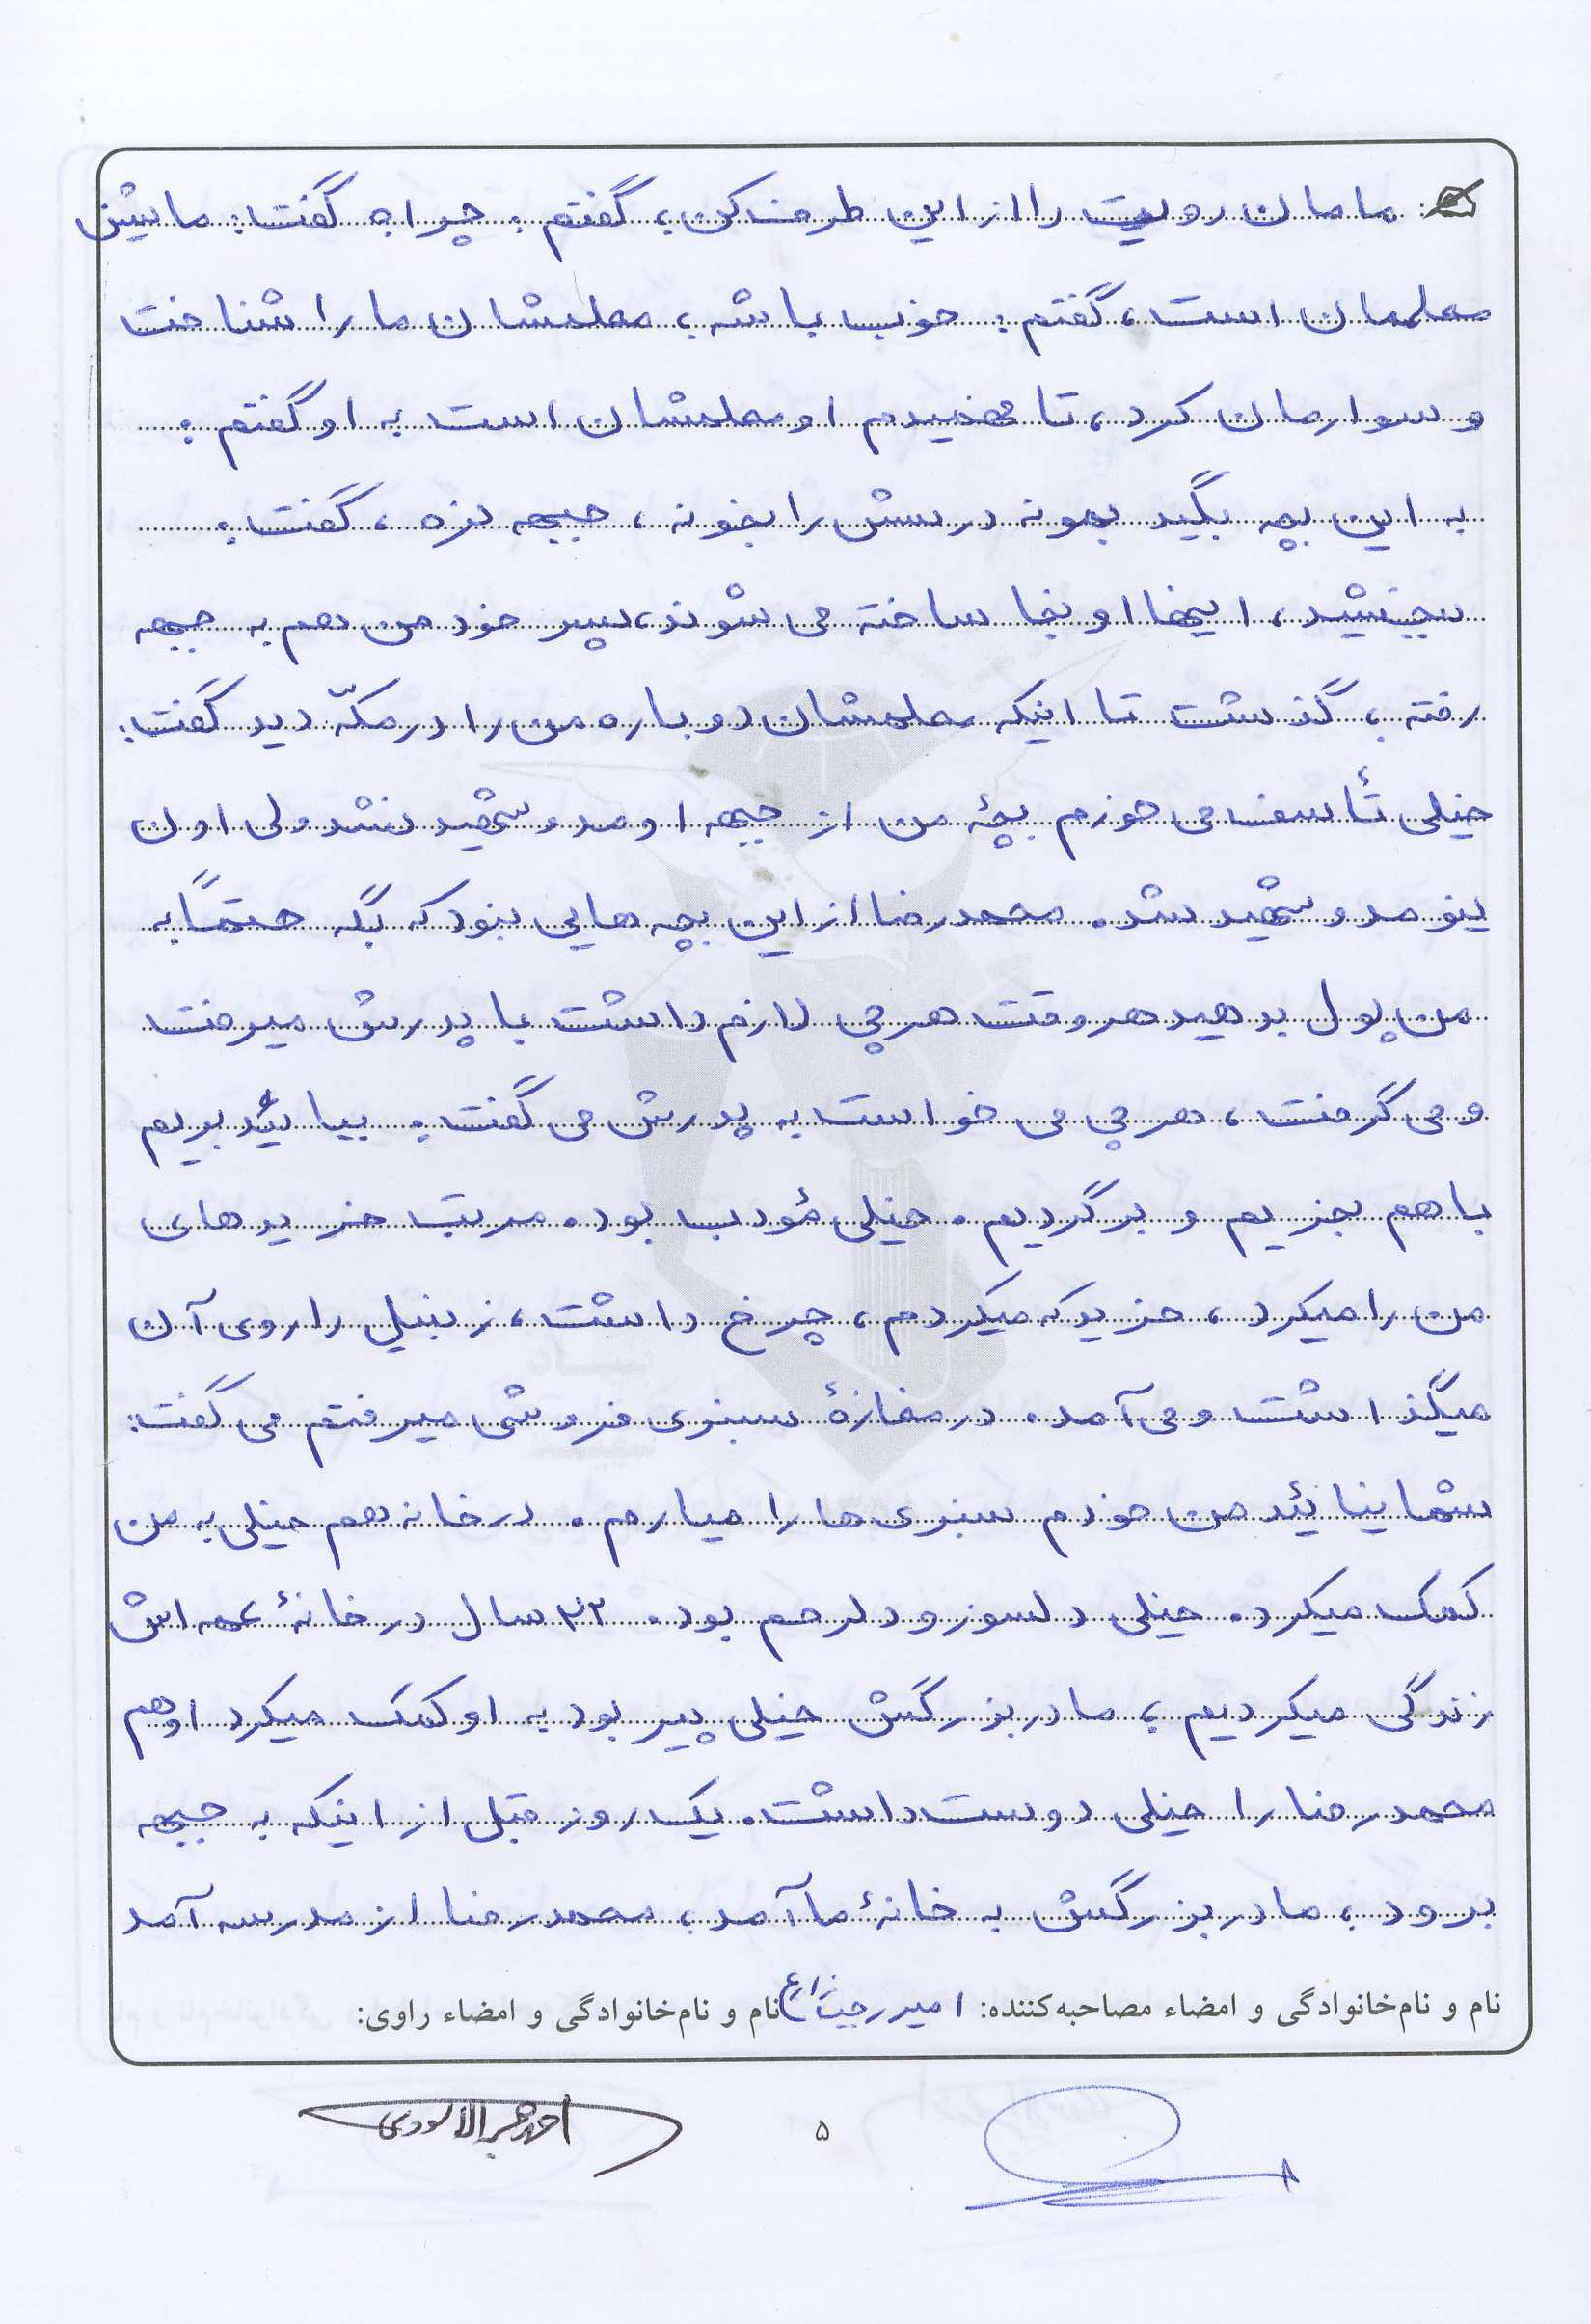 مامان رویت را از این طرف کن، گفتم: چرا؟ گفت: ماشین
معلممان است، گفتم: خوب باشه، معلمشان ما را شناخت
و سوارمان کرد، تا فهمیدم او معلمشان است به او گفتم:
به این بچه بگید بمونه درسش را بخونه، جبهه نره، گفت:
ببخشید، اینها اونجا ساخته می شوند، پسر خود من هم به جبهه
رفته، گذشت تا اینکه معلمشان دوباره من را در مکّه دید گفت:
خیلی تأسف می خورم بچۀ من از جبهه اومد و شهید نشد ولی اون
نیومد و شهید شد. محمدرضا از این بچه هایی نبود که بگه حتماً به
من پول بدهید هر وقت هر چی لازم داشت با پدرش میرفت
و می گرفت، هر چی می خواست به پدرش می گفت: بیائید بریم
با هم بخریم و برگردیم. خیلی مؤدب بود. مرتب خریدهای
من را میکرد، خرید که میکردم، چرخ داشت، زنبیل را روی آن
میگذاشت و می آمد. در مغازۀ سبزی فروشی میرفتم می گفت:
شما نیائید من خودم سبزی ها را میارم. در خانه هم خیلی به من
کمک میکرد. خیلی دلسوز و دلرحم بود. ۲۳ سال در خانۀ عمه اش
زندگی میکردیم، مادربزرگش خیلی پیر بود به او کمک میکرد او هم
محمدرضا را خیلی دوست داشت. یک روز قبل از اینکه به جبهه
برود، مادربزرگش به خانۀ ما آمد، محمدرضا از مدرسه آمد
نام و نام‌خانوادگی و امضاء مصاحبه‌کننده: امیر نام و نام‌خانوادگی و امضاء راوی:
۵